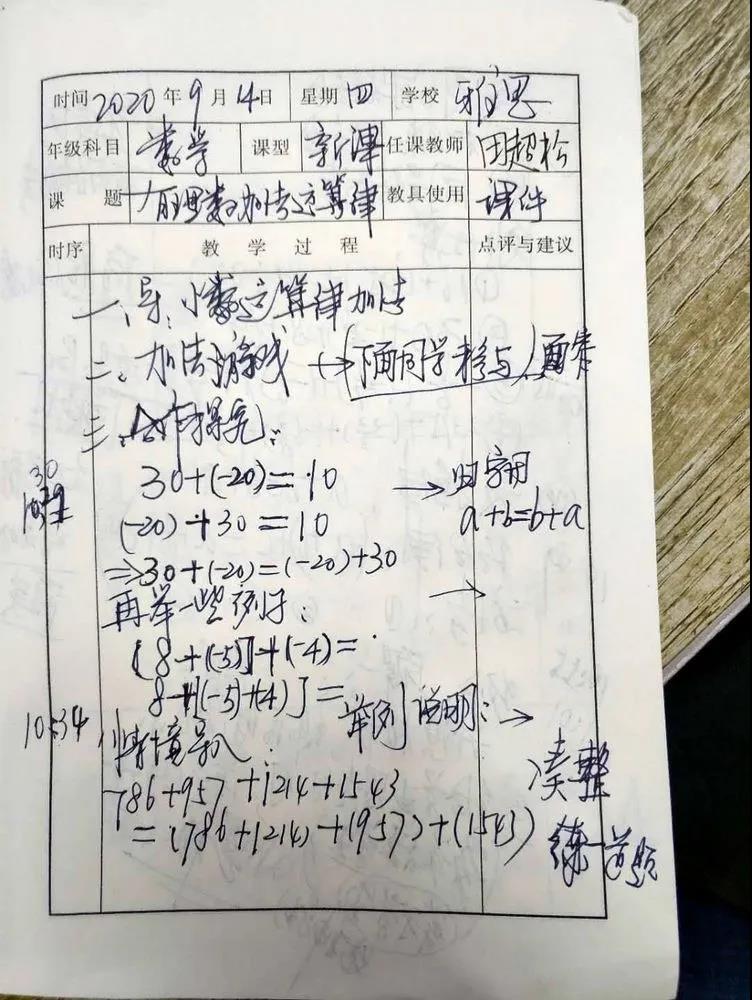 时间 2020 年 9 月 14 日 星期 四 学校 雅思
年级科目 数学 课型 新课 任课教师 田超松
课 题 有理数加法运算律 教具使用 课件
时序 教 学 过 程 点评与建议
一、导:小数运算律加法
二、加法游戏 → 两同学参与
三、合作探究:
30+(-20)=10 → 用字母
(-20)+30=10 a+b=b+a
⇒30+(-20)=(-20)+30
再举一些例子: →
[8+(-5)]+(-4)=
8+[(-5)+(-4)]=
举例说明: →
10:34 情境导入:
786+957+1214+1543 凑整
=(786+1214)+(957)+(1543) 练一道题